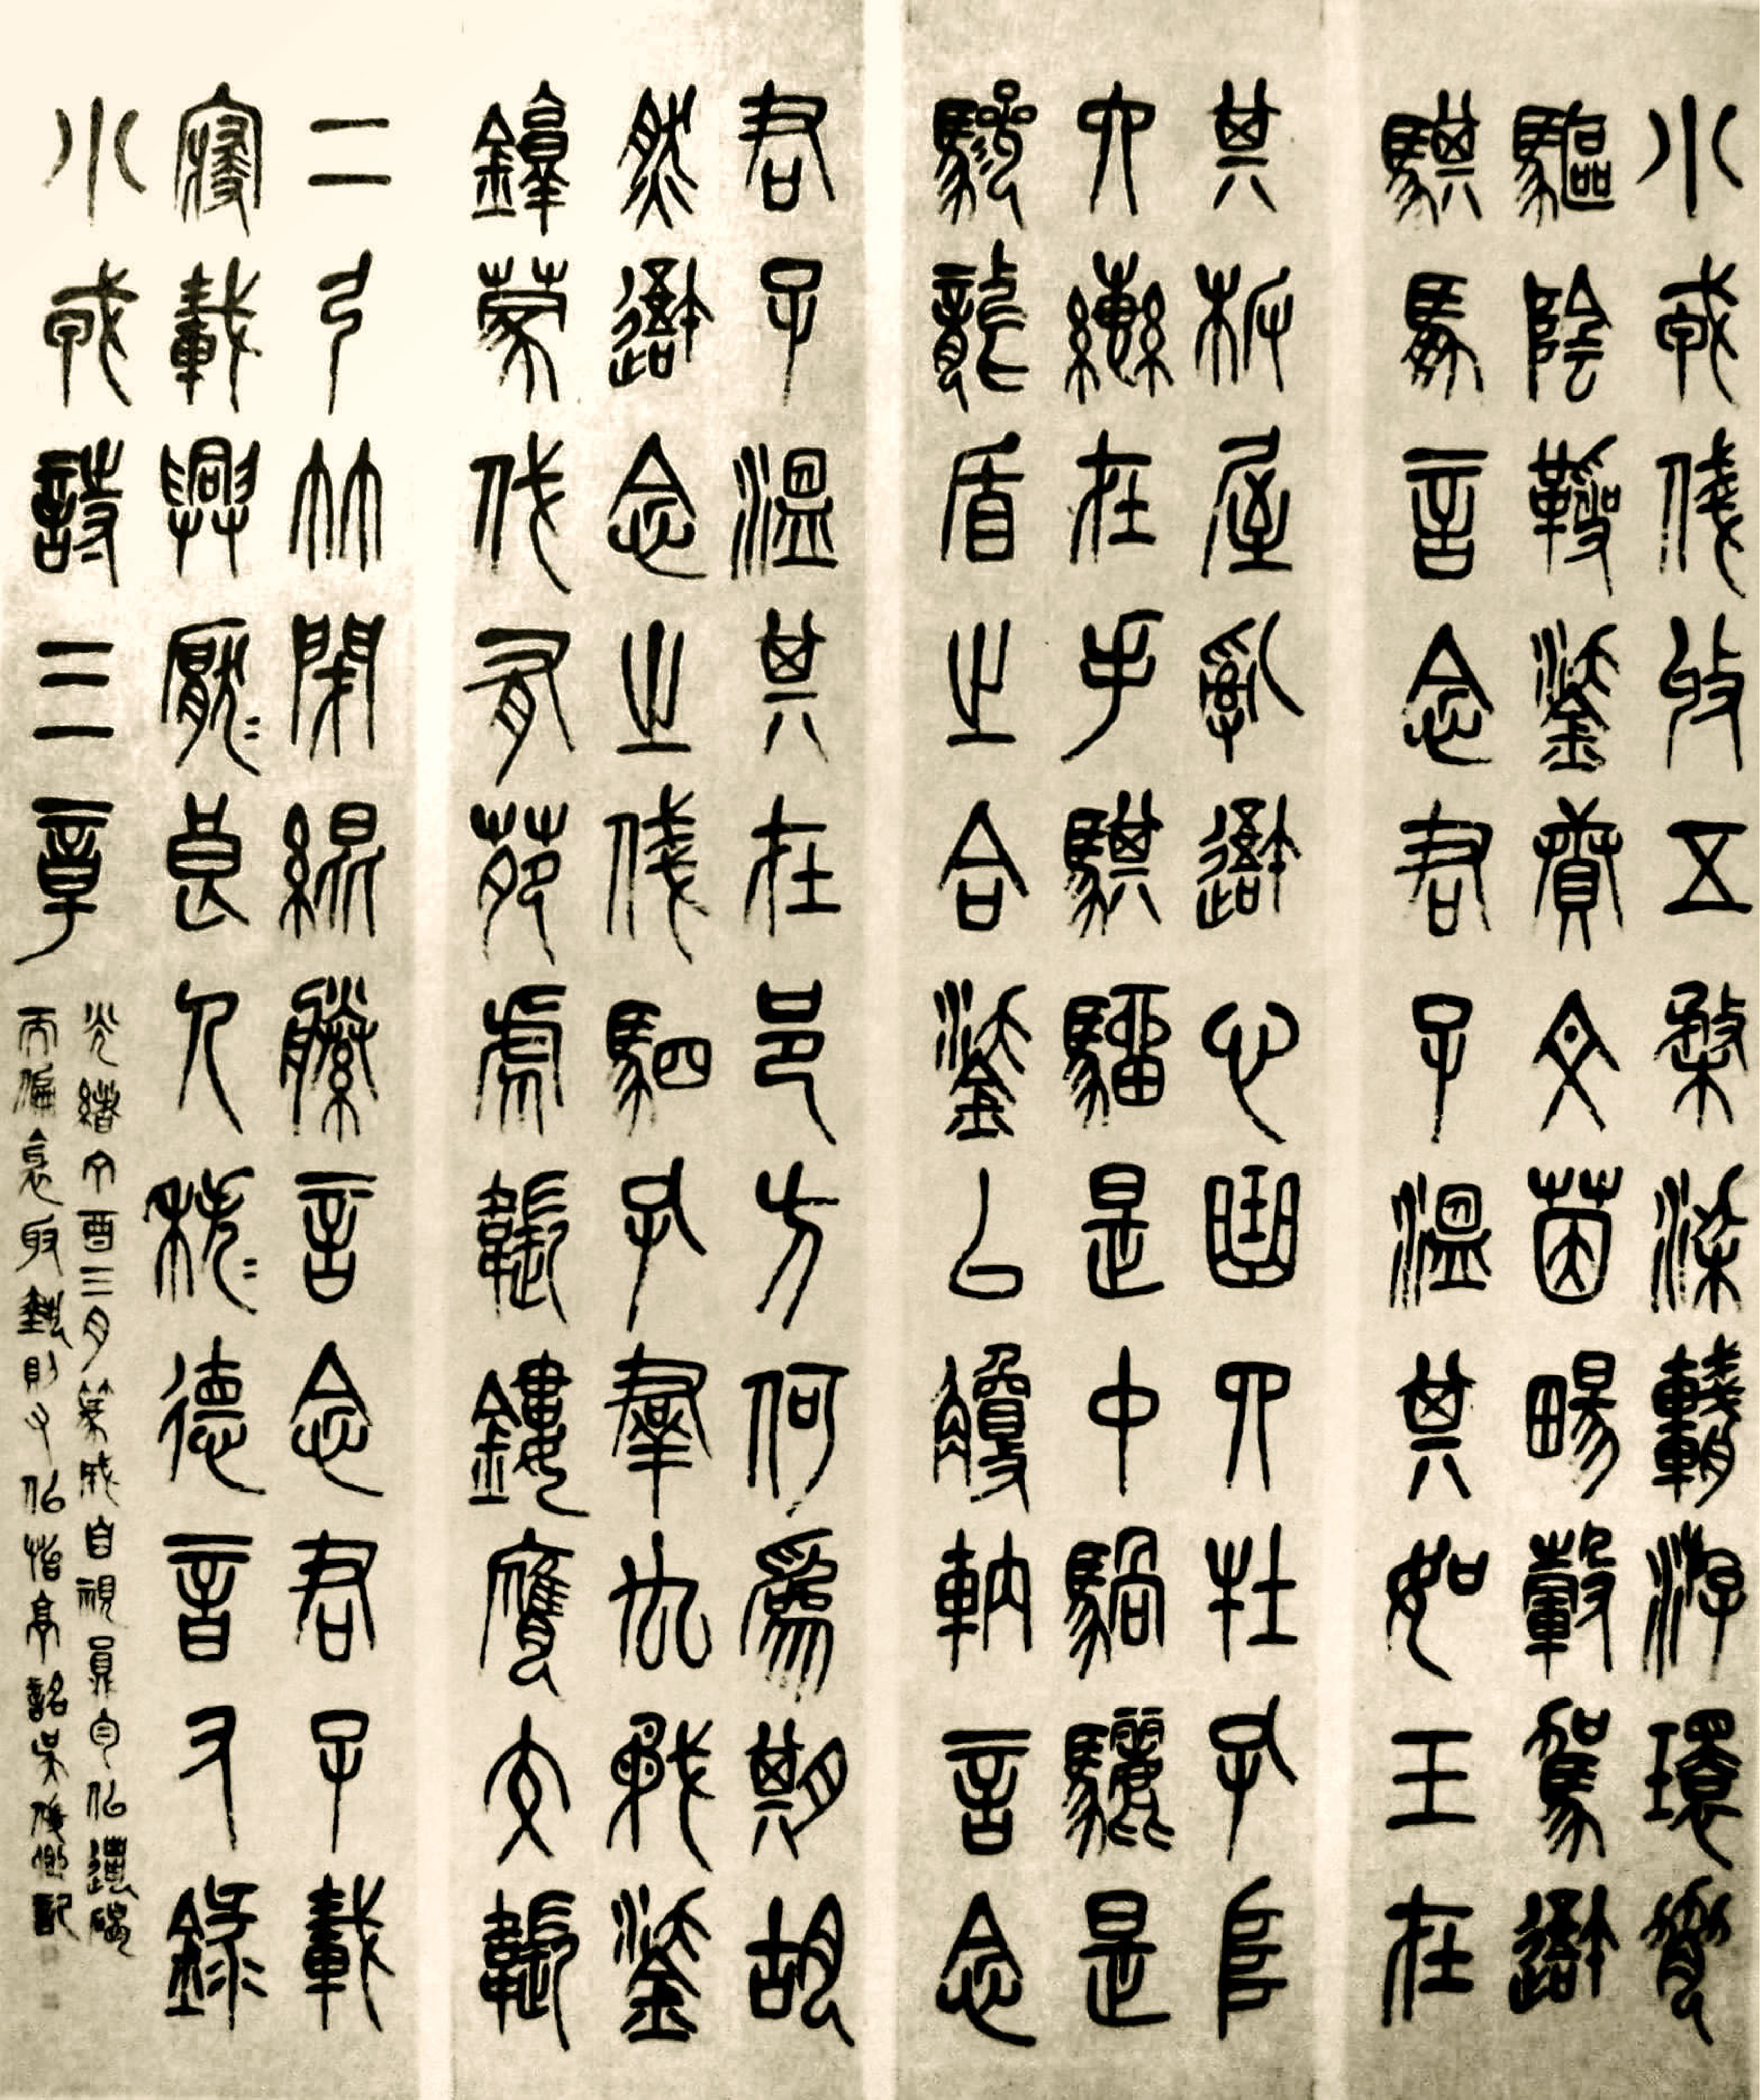 小戎俴收五楘梁輈游環脅
驅陰靷鋈續文茵暢轂駕我
騏馵言念君子溫其如玉在
其板屋亂我心曲四牡孔阜
六轡在手騏駵是中騧驪是
驂龍盾之合鋈以觼軜言念
君子溫其在邑方何為期胡
然我念之俴駟孔群厹矛鋈
錞蒙伐有苑虎韔鏤膺交韔
二弓竹閉緄縢言念君子載
寢載興厭=良人秩=德音右錄
小戎詩三章
光緒丁酉三月篆成自視
吳俊卿記